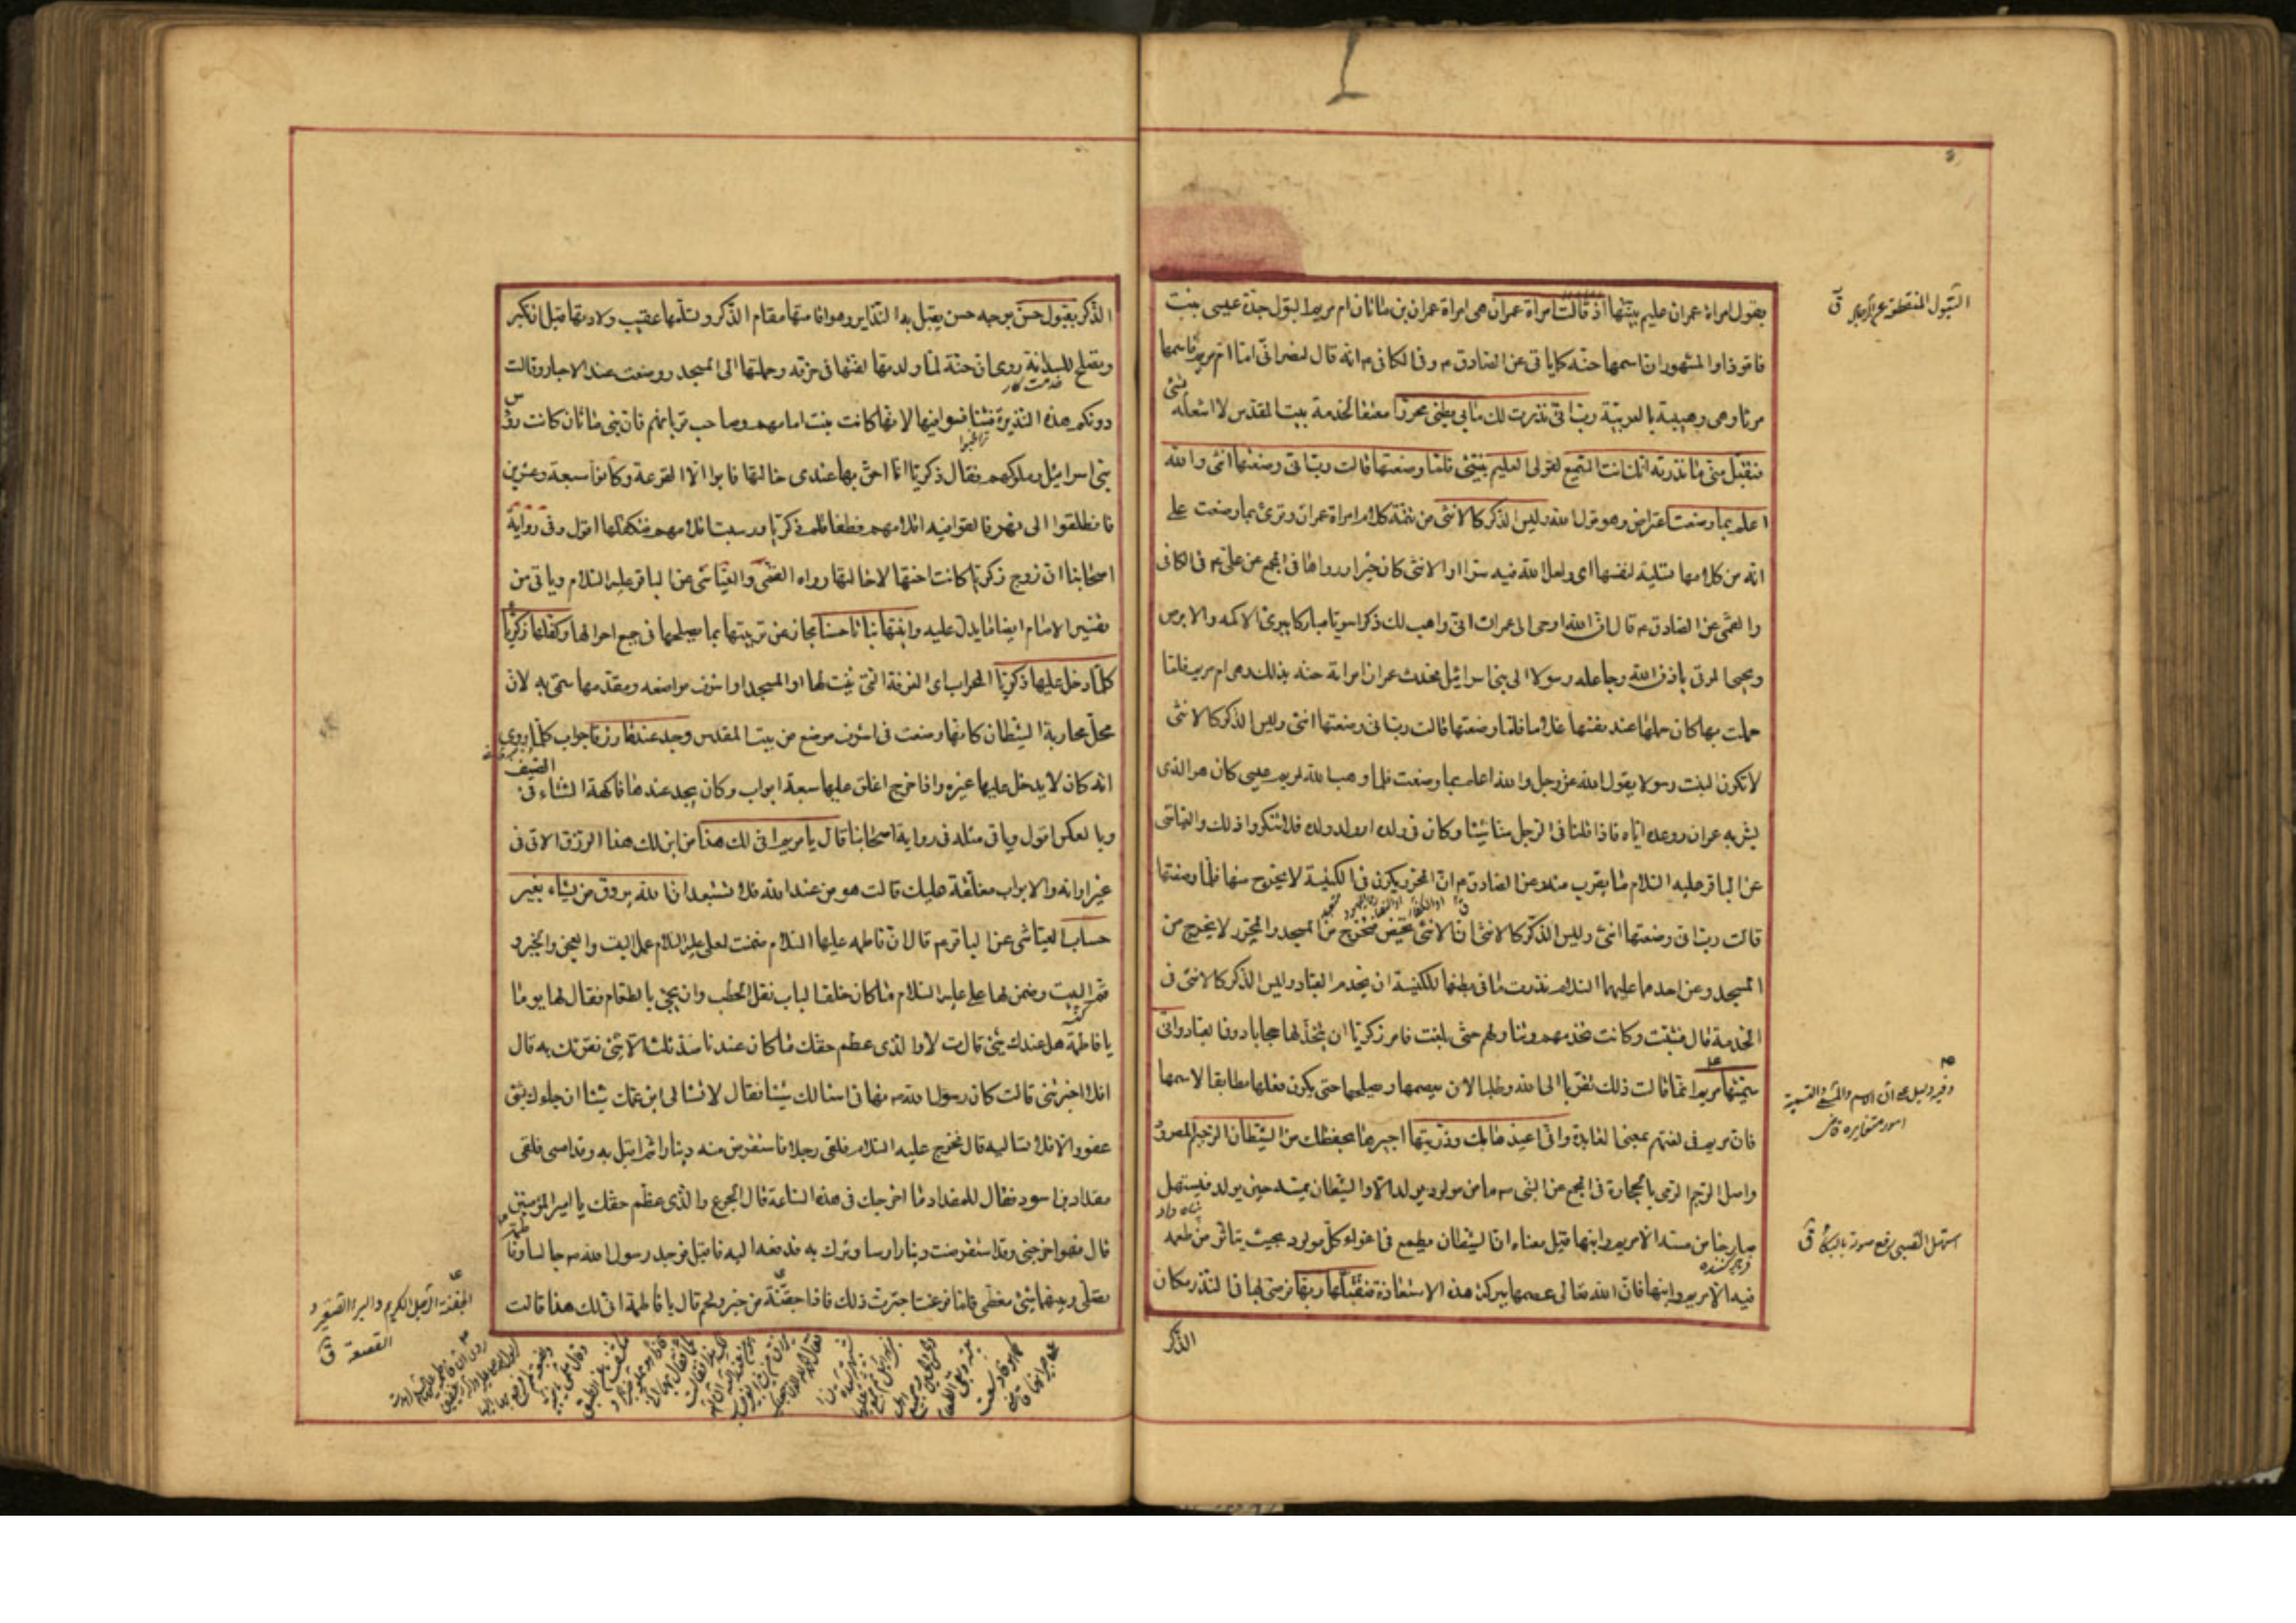 بقول امراة عمران عليم بنيتها اذ قالت امراة عمران هى امراة عمران بن ماثان ام مريم البتول جدة عيسى بنت
فاقوذا والمشهور ان اسمها حنه كما ياتى عن الصادق ع وفى الكافى ع انه قال لنصرانى اما ام مريم فاسمها
مرثا وهى وهيبة بالعربية رب انى نذرت لك ما فى بطنى محررا معتقا لخدمة بيت المقدس لا اشغله بشئ
فتقبل منى ما نذرته انك انت السميع لقولى العليم بنيتى فلما وضعتها قالت رب انى وضعتها انثى والله
اعلم بما وضعت اعتراض وهو قول الله وليس الذكر كالانثى من تتمة كلام امراة عمران وقرئ بما وضعت على
انه من كلامها تسلية لنفسها اى ولعل الله فيه سرا او الانثى كان خيرا ورواها فى المجمع عن على ع فى الكافى
والقمى عن الصادق ع قال ان الله اوحى الى عمران انى واهب لك ذكرا سويا مباركا يبرئ الاكمه والابرص
ويحيى الموتى باذن الله وجاعله رسولا الى بنى اسرائيل فحدث عمران امراته حنه بذلك وهى ام مريم فلما
حملت بها كان حملها عند نفسها غلاما فلما وضعتها قالت رب انى وضعتها انثى وليس الذكر كالانثى
لا تكون البنت رسولا يقول الله عز وجل والله اعلم بما وضعت فلما وهب الله لمريم عيسى كان هو الذى
بشر به عمران ووعده اياه فاذا قلنا فى الرجل منا شيئا وكان فى ولده او ولد ولده فلا تنكروا ذلك والعياشى
عن الباقر عليه السلام ما يقرب منه وعن الصادق ع ان المحرر يكون فى الكنيسة لا يخرج منها فلما وضعتها
قالت رب انى وضعتها انثى وليس الذكر كالانثى ان الانثى تحيض فتخرج من المسجد والمحرر لا يخرج من
المسجد وعن احدهما عليهما السلام نذرت ما فى بطنها للكنيسة ان يخدم العباد وليس الذكر كالانثى فى
الخدمة قال فشبت وكانت تخدمهم وتناولهم حتى بلغت فامر زكريا ان يتخذ لها حجابا دون العباد وانى
سميتها مريم انما قالت ذلك تقربا الى الله وطلبا لان يعصمها ويصلحها حتى يكون فعلها مطابقا لاسمها
فان مريم فى لغتهم بمعنى العابدة وانى اعيذها بك وذريتها اجيرها بحفظك من الشيطان الرجيم المطرود
واصل الرجم الرمى بالحجارة فى المجمع عن النبى ص ما من مولود يولد الا والشيطان يمسه حين يولد فيستهل
صارخا من مسه الا مريم وابنها قيل معناه ان الشيطان يطمع فى اغواء كل مولود بحيث يتاثر من طمعه
فيه الا مريم وابنها فان الله تعالى عصمها ببركة هذه الاستعاذة فتقبلها ربها فرضى بها فى النذر مكان
الذكر
البتول المنقطعة عن الرجال ق
وفيه دليل على ان الاسم والمسمى والتسمية
امور متغايرة قاضى
استهل الصبى رفع صوته بالبكاء ق
الذكر بقبول حسن بوجه حسن يقبل به النذاير وهو اقامتها مقام الذكر وتسلمها عقيب ولادتها قبل ان تكبر
وتصلح للسدانة روى ان حنة لما ولدتها لفتها فى خرقة وحملتها الى المسجد ووضعت عند الاحبار وقالت
دونكم هذه النذيرة فتنافسوا فيها لانها كانت بنت امامهم وصاحب قربانهم فان بنى ماثان كانت رؤس
بنى اسرائيل وملوكهم فقال زكريا انا احق بها عندى خالتها فابوا الا القرعة وكانوا سبعة وعشرين
فانطلقوا الى نهر فالقوا فيه اقلامهم فطفا قلم زكريا ورسبت اقلامهم فتكفلها اقول وفى رواية
اصحابنا ان زوج زكريا كانت اختها لا خالتها رواه القمى والعياشى عن الباقر عليه السلام وياتى من
تفسير الامام ايضا ما يدل عليه وانبتها نباتا حسنا مجاز عن تربيتها بما يصلحها فى جميع احوالها وكفلها زكريا
كلما دخل عليها زكريا المحراب اى الغرفة التى بنيت لها او المسجد او اشرف مواضعه ومقدمها سمى به لانه
محل محاربة الشيطان كانها وضعت فى اشرف موضع من بيت المقدس وجد عندها رزقا جواب كلما روى
انه كان لا يدخل عليها غيره واذا خرج اغلق عليها سبعة ابواب وكان يجد عندها فاكهة الشتاء فى الصيف
وبالعكس اقول وياتى مثله فى رواية اصحابنا قال يا مريم انى لك هذا من اين لك هذا الرزق الاتى فى
غير اوانه والابواب مغلقة عليك قالت هو من عند الله فلا تستبعد ان الله يرزق من يشاء بغير
حساب العياشى عن الباقر ع قال ان فاطمة عليها السلام ضمنت لعلى عليه السلام عمل البيت والعجن والخبز و
قم البيت وضمن لها على عليه السلام ما كان خلف الباب نقل الحطب وان يجئ بالطعام فقال لها يوما
يا فاطمة هل عندك شئ قالت لا والذى عظم حقك ما كان عندنا منذ ثلث الا شئ نقريك به قال
افلا اخبرتنى قالت كان رسول الله ص نهانى اسالك شيئا فقال لا تسالى ابن عمك شيئا ان جاءك بشئ
عفوا والا فلا تساليه قال فخرج عليه السلام فلقى رجلا فاستقرض منه دينارا ثم اقبل به وقد امسى فلقى
مقداد بن اسود فقال للمقداد ما اخرجك فى هذه الساعة قال الجوع والذى عظم حقك يا امير المؤمنين
قال فهو اخرجنى وقد استقرضت دينارا وساوثرك به فدفعه اليه فاقبل فوجد رسول الله ص جالسا وفاطمة
تصلى وبينهما شئ مغطى فلما فرغت احترت ذلك فاذا جفنة من خبز ولحم قال يا فاطمة انى لك هذا قالت
الجفنة الرجل الكريم والبئر الصغيرة و
القصعة ق